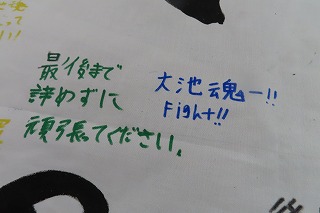 最後まで
諦めずに
頑張てください。
大池魂ー!!
Fight!!